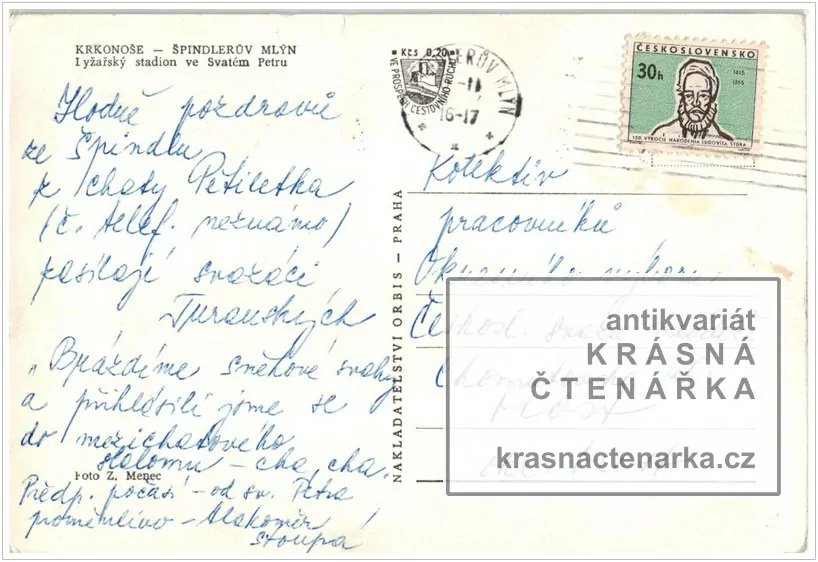 KRKONOŠE — ŠPINDLERŮV MLÝN
Lyžařský stadion ve Svatém Petru
Hodně pozdravů
ze Špindlu
z chaty Pětiletka
(č. telef. neznámo)
zasílají svazáci
Turanských
„Brázdíme sněhové svahy
a přihlásili jsme se
do mezichatového
slalomu – cha, cha.
Foto Z. Menec
Předp. počasí – od sv. Petra
proměnlivo – tlakoměr
stoupá!
NAKLADATELSTVÍ ORBIS — PRAHA
Kčs 0,20
VE PROSPĚCH CESTOVNÍHO RUCHU
ERŮV MLÝN
16-17
ČESKOSLOVENSKO
30h
1815
1856
150. VÝROČIE NARODENIA ĽUDOVÍTA ŠTÚRA
Kolektiv
pracovníků
Okresního výboru
Českosl. svazu
Most
antikvariát
KRÁSNÁ
ČTENÁŘKA
krasnactenarka.cz